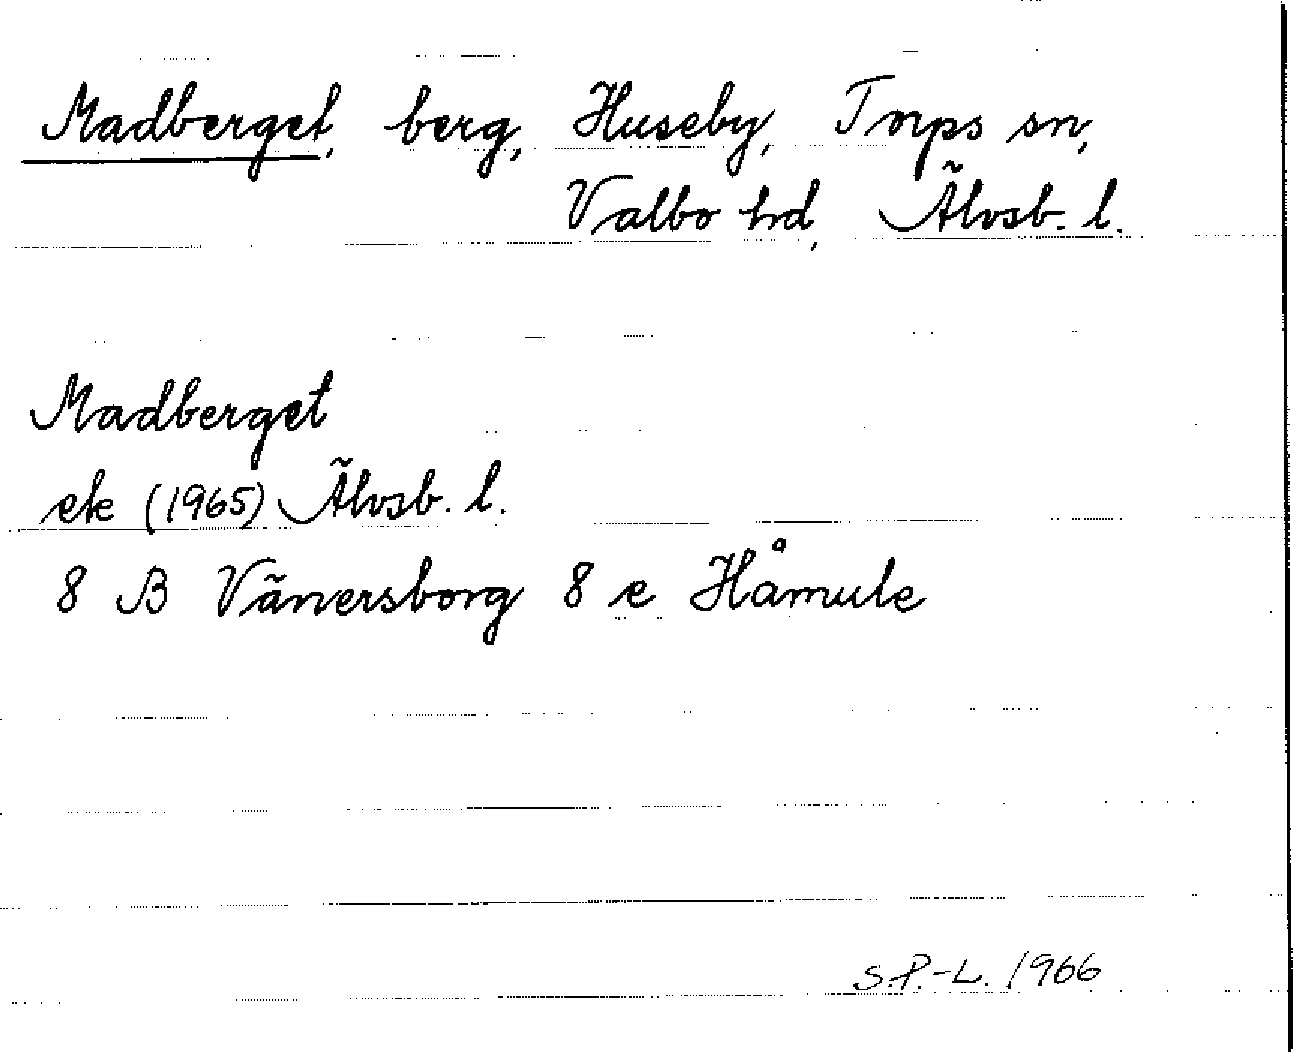 Madberget, berg, Huseby, Torps sn,
Valbo hd, Älvsb. l.
Madberget
ek (1965) Älvsb. l.
8 B Vänersborg 8 e Håmule
S.P.-L. 1966